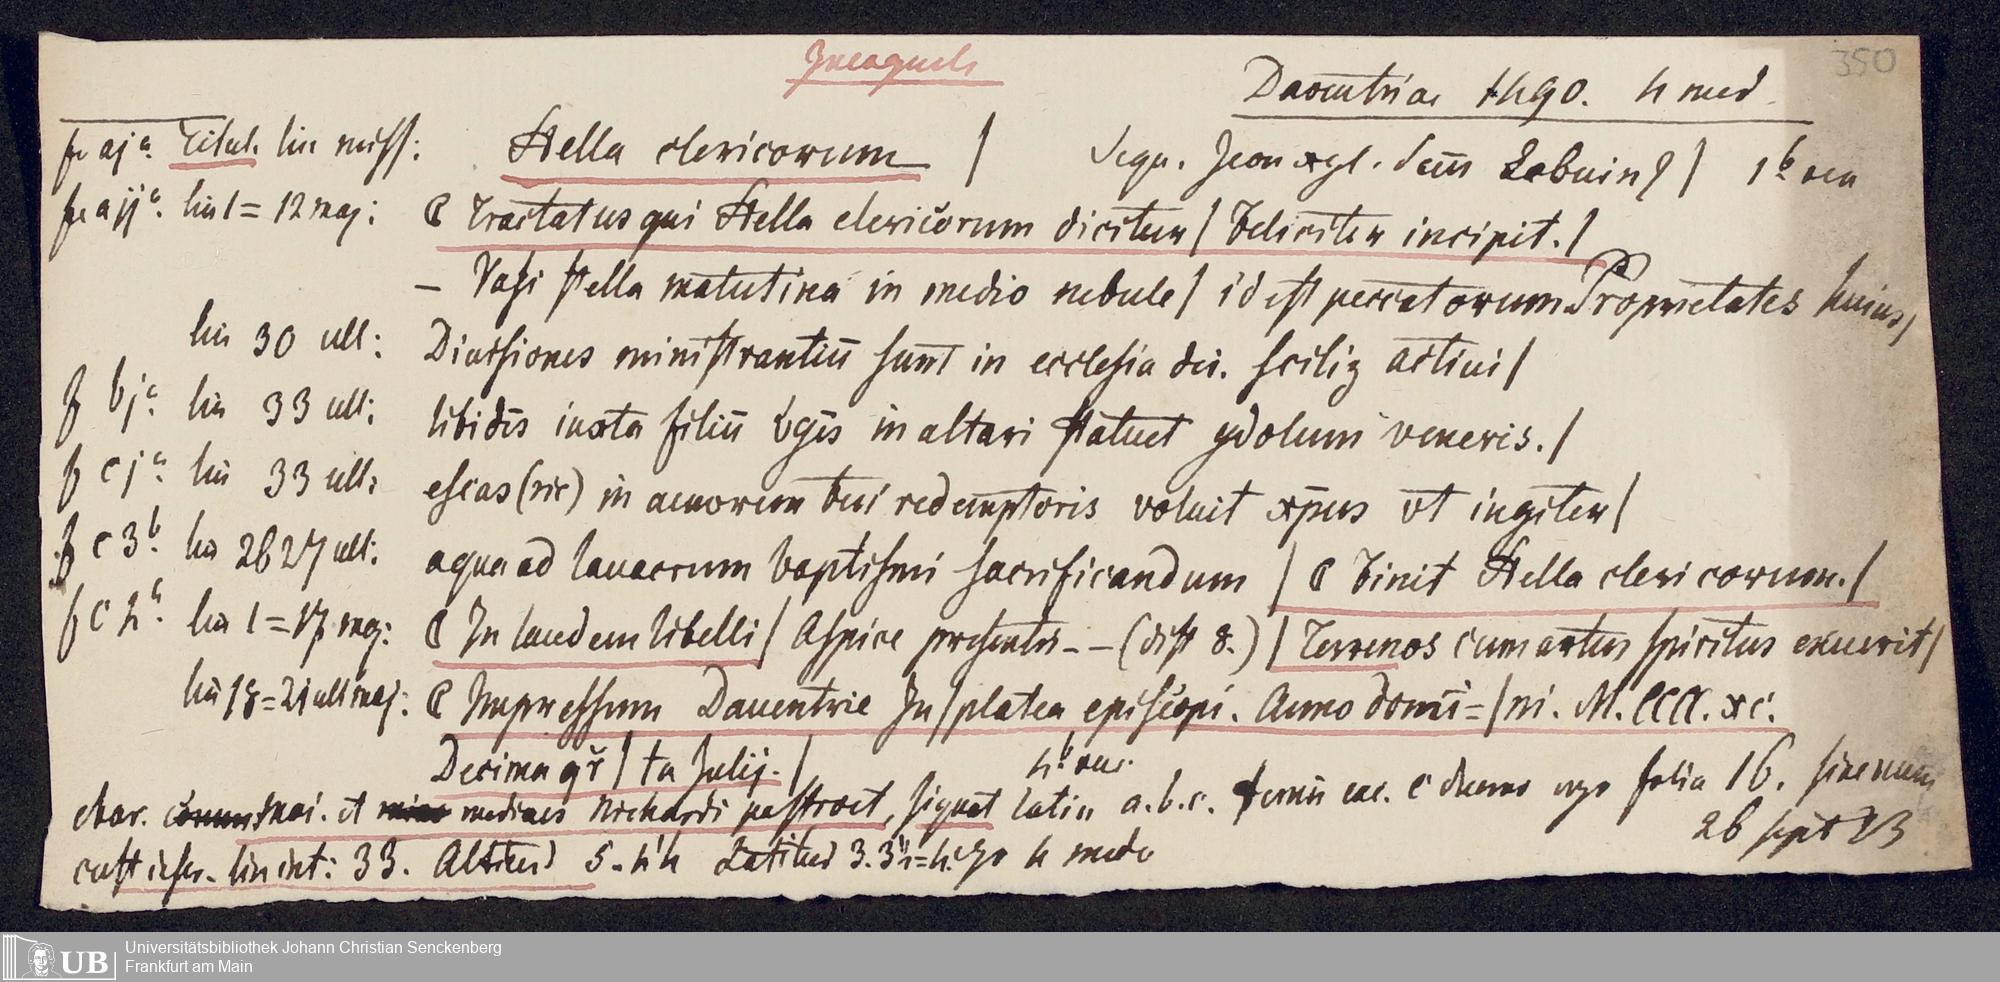 350
Dauentriae 1490. 4 med
f. aja. Titul. lin miss: Stella clericorum / Sequ. Icon xyl. Scm Lebuin9 / 1b vac
f. a ija. lin 1 = 12 maj: ₵ Tractatus qui Stella clericorum dicitur / Feliciter incipit. /
– Vasi stella matutina in medio nebule / id est peccatorum Proprietates huius /
lin 30 ult: Diuersiones ministrantiū sunt in ecclesia dei. scilicz actiui /
f bja. lin 33 ult: libidīs iuxta filiū vgīs in altari statuet ydolum veneris. /
f cja. lin 33 ult: escas (sic) in amorem tui redemptoris voluit xp̄us vt ingiter /
f c3b. lin 26 27 ult: aqua ad lauacrum baptismi sacrificandum / ₵ Finit Stella clericorum. /
f c4a. lin 1 = 17 maj: ₵ In laudem libelli / Aspice presentis – – (dist 8.) / Terrenos cum artus spiritus exuerit /
lin 18 = 21 ult maj: ₵ Impressum Dauentrie In / platea episcopi. Anno domi = / ni. M. CCCC. xc.
Decima qr / ta Julij. / 4b vac.
char. maj. et medioes Richardi pastroet, signat latin a. b. c. folia 16. sine num
lin int: 33. Altitud 5. Latitud 3. 4 medo 26 sept 23
Universitätsbibliothek Johann Christian Senckenberg
UB Frankfurt am Main